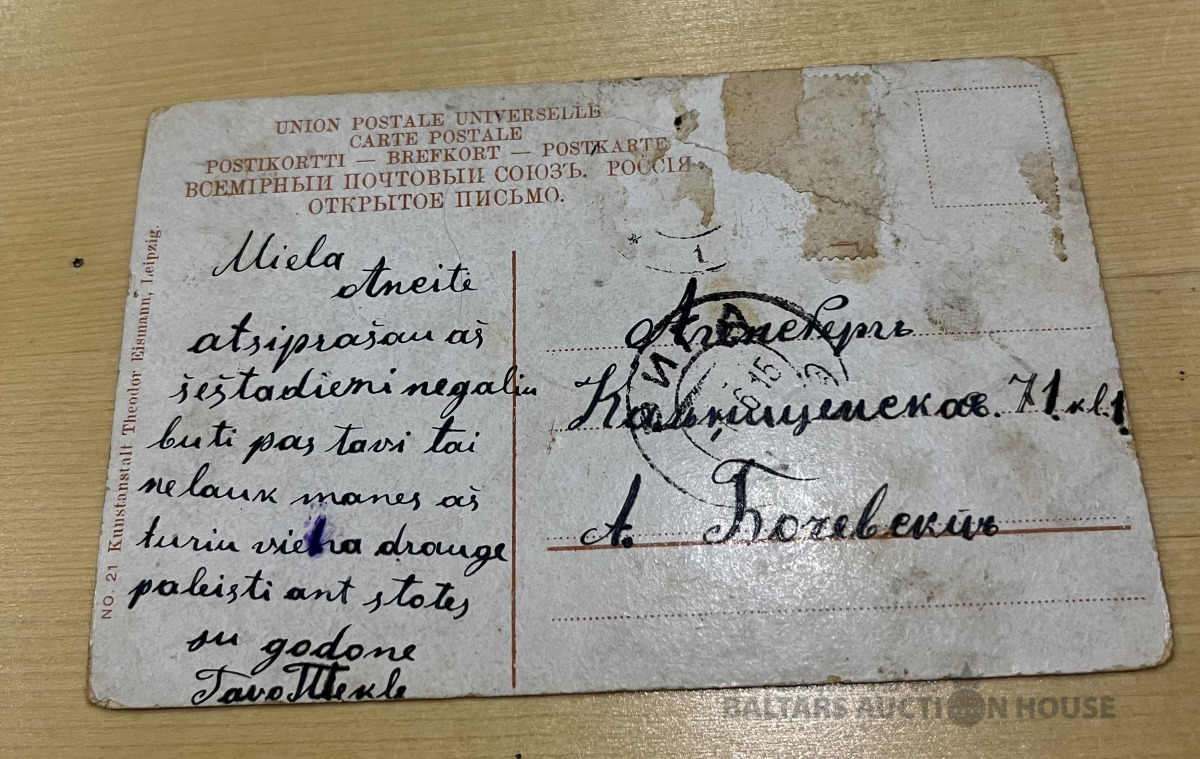 UNION POSTALE UNIVERSELLE
CARTE POSTALE
POSTIKORTTI — BREFKORT — POSTKARTE
ВСЕМІРНЫЙ ПОЧТОВЫЙ СОЮЗЪ. РОССІЯ
ОТКРЫТОЕ ПИСЬМО.
NO. 21 Kunstanstalt Theodor Eismann, Leipzig.
Miela
Aneitė
atsiprašau aš
šeštadieni negaliu
buti pas tavi tai
nelauk manęs aš
turiu viena drauge
paleisti ant stotes
su godone
Tavo Текле
1
15
Агенсбергъ
71 кв. 1
А. Бочевскій
BALTARS AUCTION HOUSE